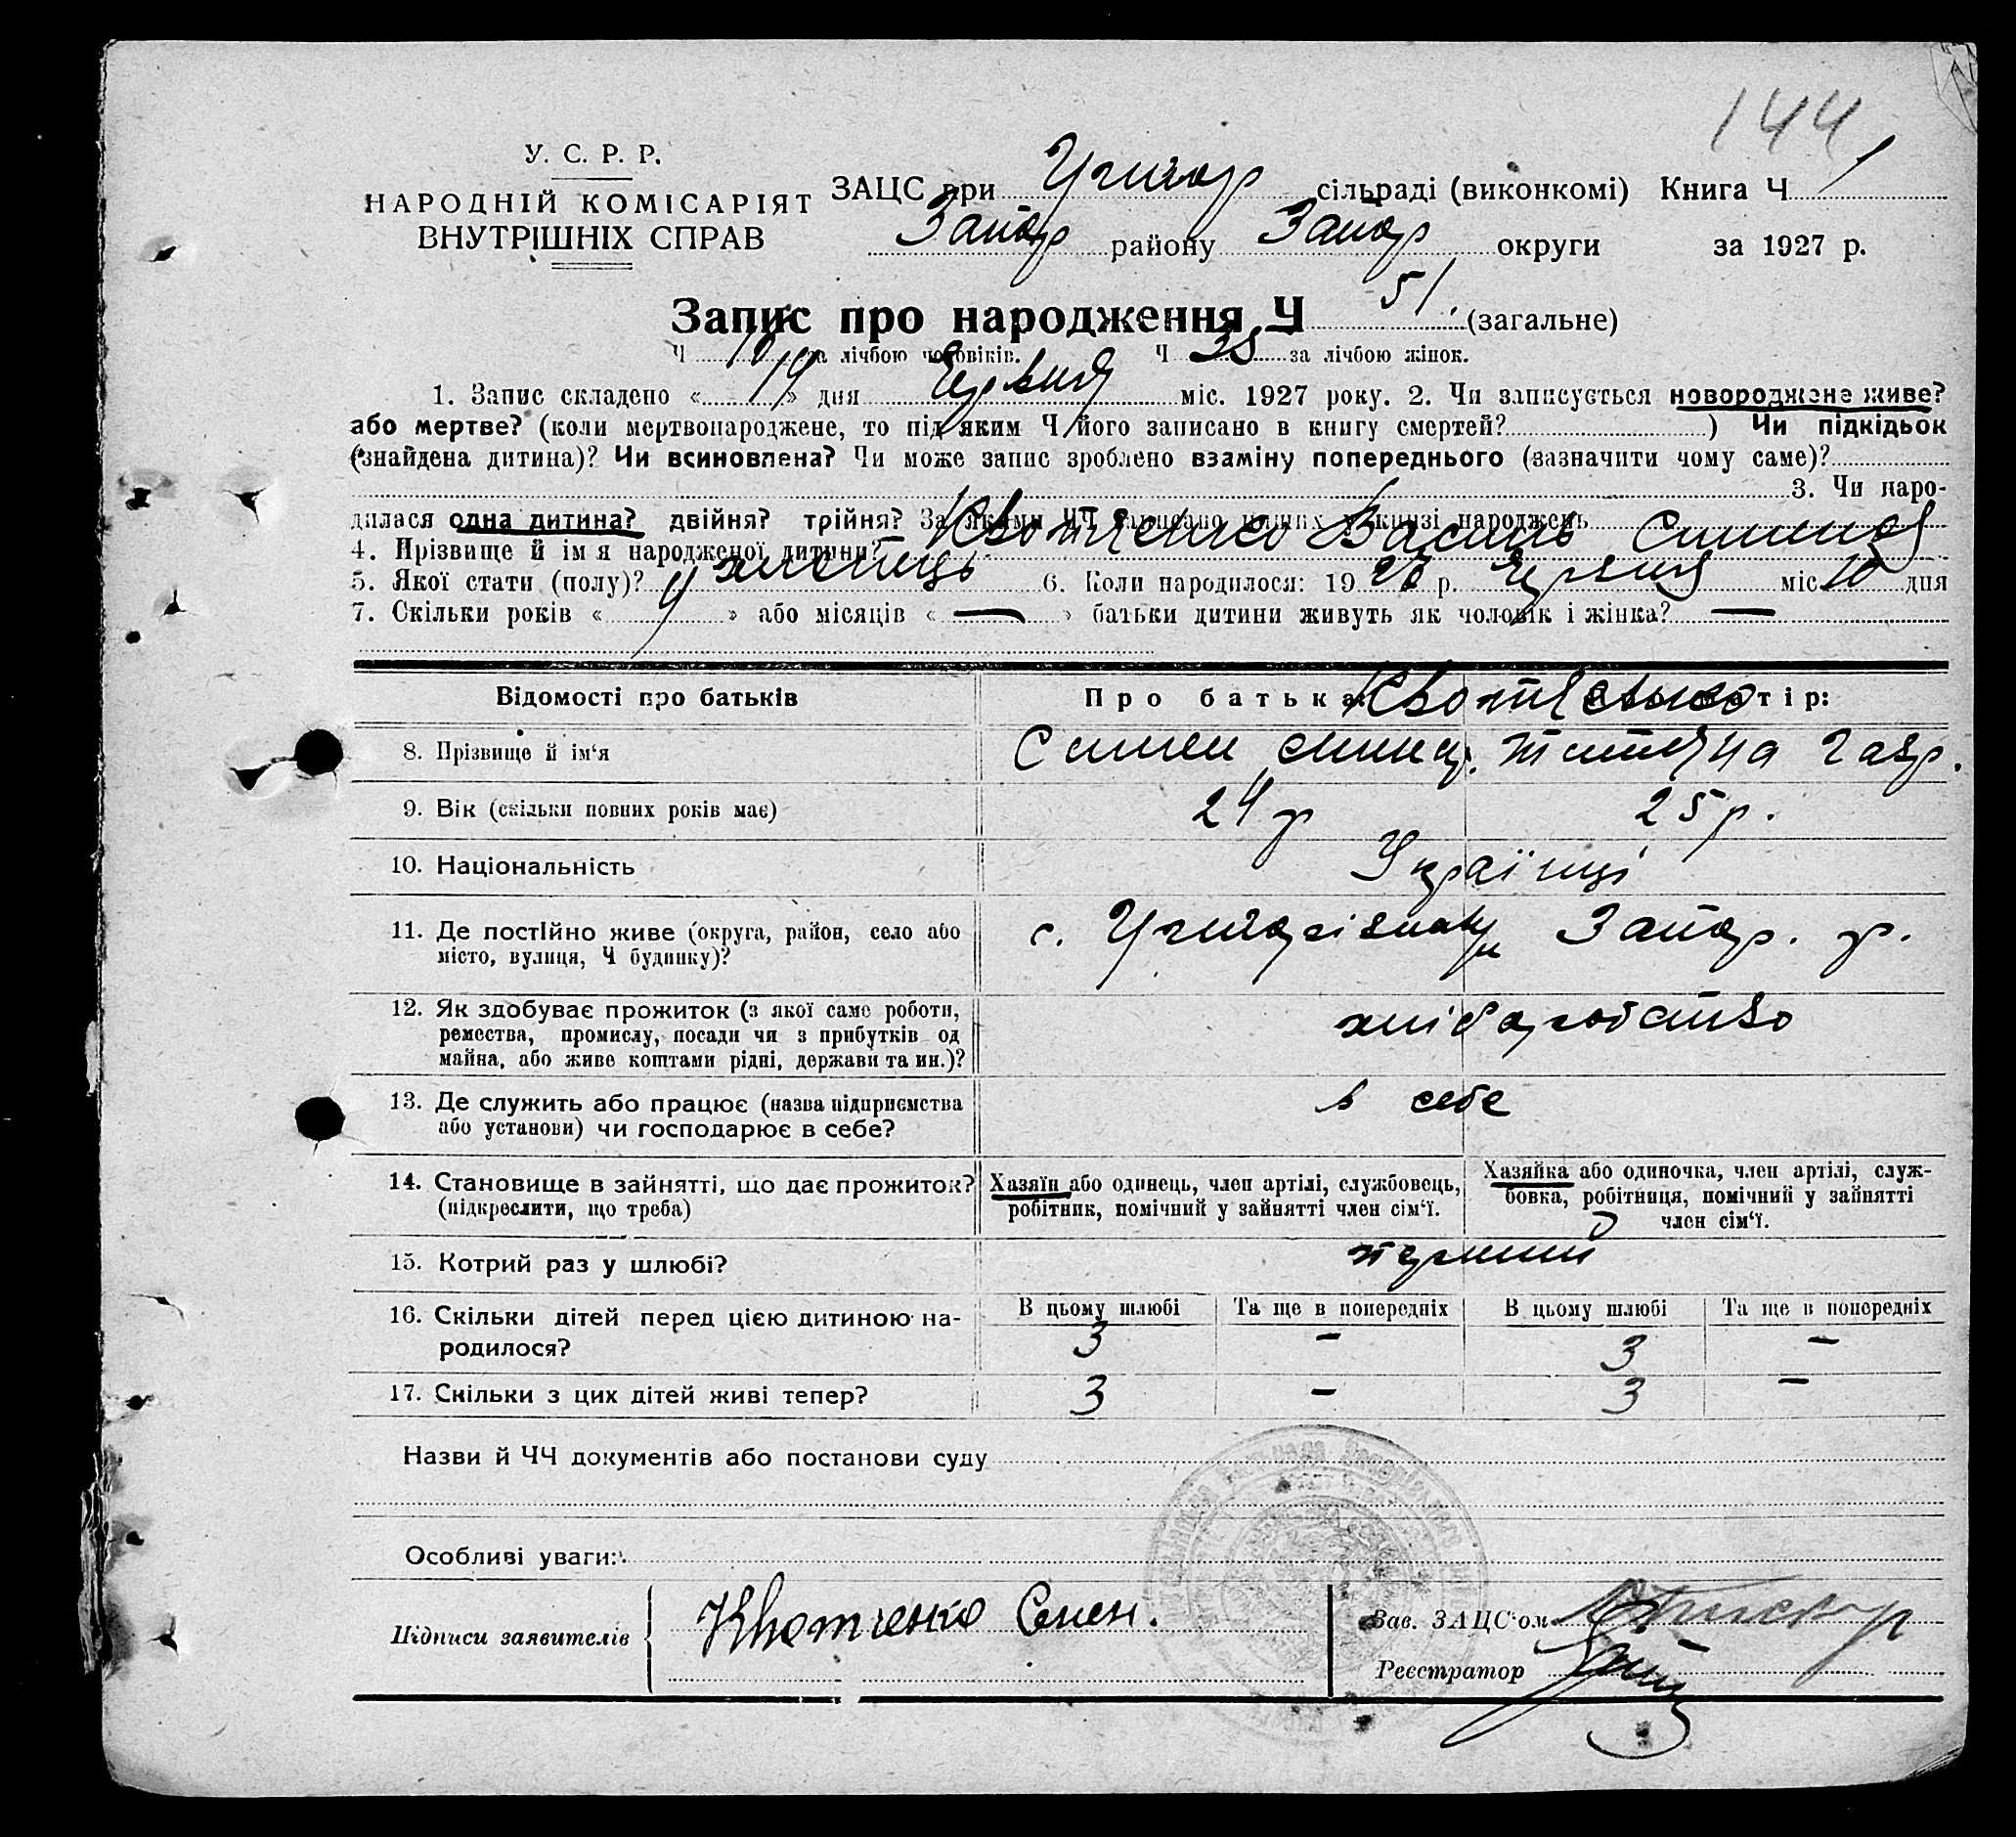 144
У. С. Р. Р.
НАРОДНІЙ КОМІСАРІЯТ
ВНУТРІШНІХ СПРАВ
ЗАЦС при Григор сільраді (виконкомі) Книга Ч 1
Запор району Запор округи за 1927 р.
Запис про народження Ч 51. (загальне)
Ч за лічбою чоловіків. Ч за лічбою жінок.
1. Запис складено « 19 » дня Червня міс. 1927 року. 2. Чи записується новороджене живе?
або мертве? (коли мертвонароджене, то під яким Ч його записано в книгу смертей? ) Чи підкідьок
(знайдена дитина)? Чи всиновлена? Чи може запис зроблено взаміну попереднього (зазначити чому саме)?
3. Чи наро-
дилася одна дитина? двійня? трійня? За якими ЧЧ записано інших у книзі народжень
4. Прізвище й ім'я народженої дитини? Квотченко Василь
5. Якої стати (полу)? хлопець 6. Коли народилося: 1927 р. Червня міс. 10 дня
7. Скільки років « » або місяців « — » батьки дитини живуть як чоловік і жінка? —
Відомості про батьків Про батька: Квотченко
8. Прізвище й ім'я Семен Тетяна Гавр.
9. Вік (скільки повних років має) 24 р 25 р.
10. Національність Українці
11. Де постійно живе (округа, район, село або
місто, вулиця, Ч будинку)?
с. Григорівка Запор. р.
12. Як здобуває прожиток (з якої саме роботи,
ремества, промислу, посади чи з прибутків од
майна, або живе коштами рідні, держави та ин.)?
хліборобство
13. Де служить або працює (назва підприємства
або установи) чи господарює в себе?
в себе
14. Становище в зайнятті, що дає прожиток?
(підкреслити, що треба)
Хазяїн або одинець, член артілі, службовець,
робітник, помічний у зайнятті член сім'ї.
Хазяйка або одиночка, член артілі, служ-
бовка, робітниця, помічний у зайнятті
член сім'ї.
15. Котрий раз у шлюбі? перший
16. Скільки дітей перед цією дитиною на-
родилося?
В цьому шлюбі Та ще в попередніх В цьому шлюбі Та ще в попередніх
3 – 3 –
17. Скільки з цих дітей живі тепер? 3 – 3 –
Назви й ЧЧ документів або постанови суду
Особливі уваги:
Підписи заявителів Квотченко Семен.
Зав. ЗАЦС'ом
Реєстратор